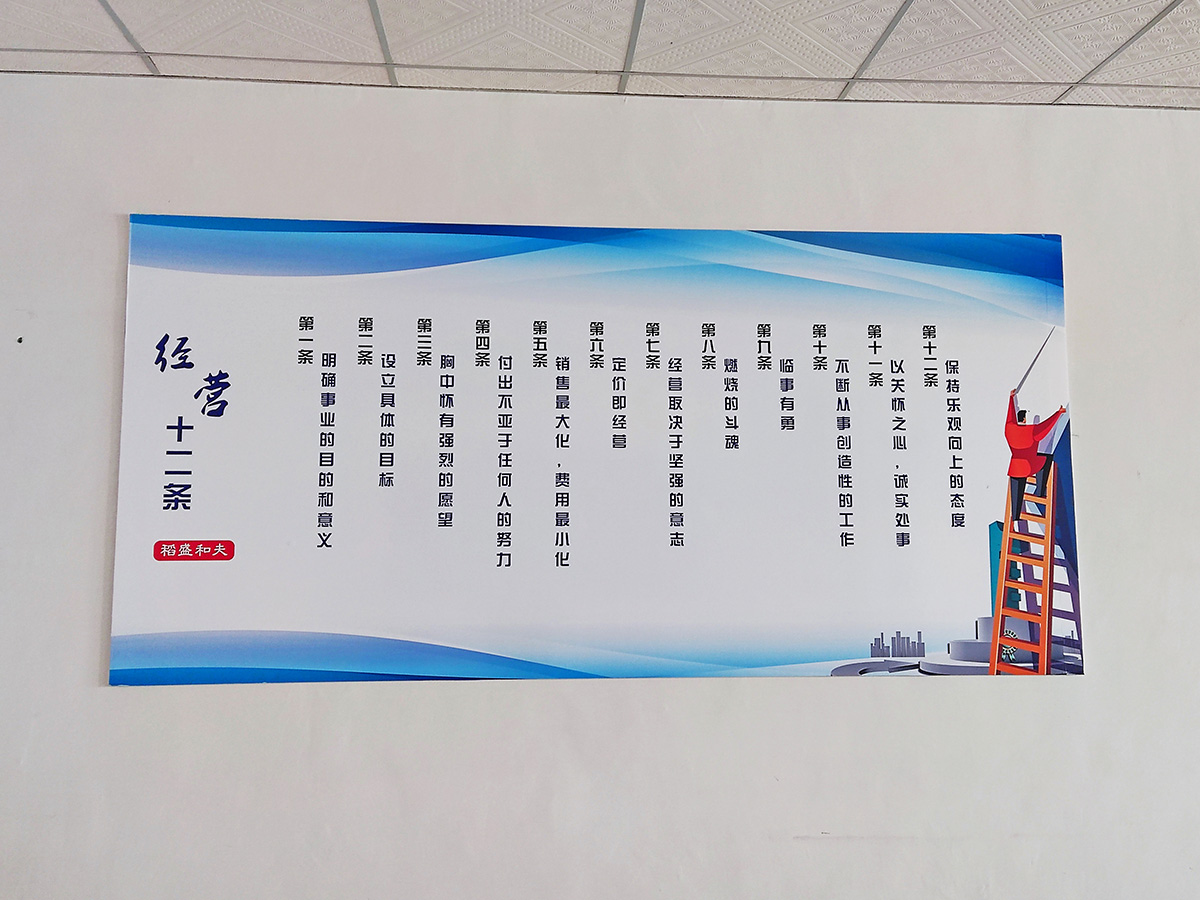 经营
十二条
稻盛和夫
第一条
明确事业的目的和意义
第二条
设立具体的目标
第三条
胸中怀有强烈的愿望
第四条
付出不亚于任何人的努力
第五条
销售最大化,费用最小化
第六条
定价即经营
第七条
经营取决于坚强的意志
第八条
燃烧的斗魂
第九条
临事有勇
第十条
不断从事创造性的工作
第十一条
以关怀之心,诚实处事
第十二条
保持乐观向上的态度